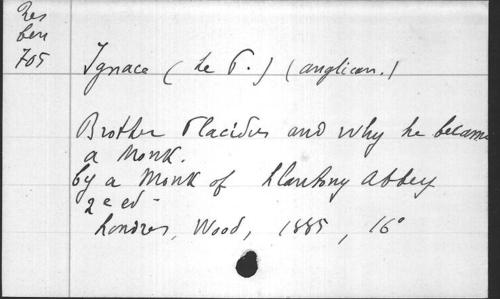 Res
ben
705
Ignace (le P.) (anglican.)
Brother Placidus and why he became
a Monk.
by a Monk of Llantony Abbey
2e ed-
Londres, Wood, 1885, 16°